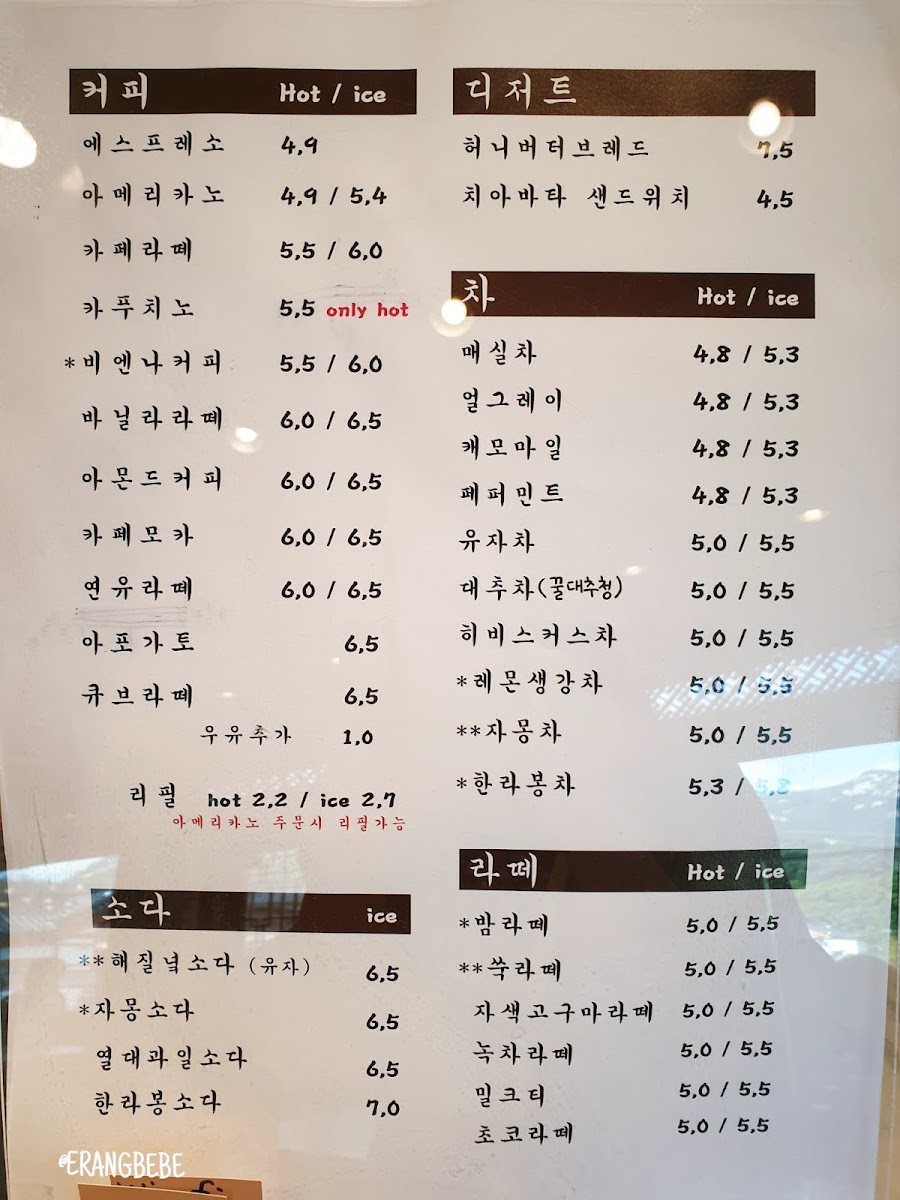 커피 Hot / ice
에스프레소 4,9
아메리카노 4,9 / 5,4
카페라떼 5,5 / 6,0
카푸치노 5,5 only hot
*비엔나커피 5,5 / 6,0
바닐라라떼 6,0 / 6,5
아몬드커피 6,0 / 6,5
카페모카 6,0 / 6,5
연유라떼 6,0 / 6,5
아포가토 6,5
큐브라떼 6,5
우유추가 1,0
리필 hot 2,2 / ice 2,7
아메리카노 주문시 리필가능
소다 ice
**해질녘소다 (유자) 6,5
*자몽소다 6,5
열대과일소다 6,5
한라봉소다 7,0
디저트
허니버터브레드 7,5
치아바타 샌드위치 4,5
차 Hot / ice
매실차 4,8 / 5,3
얼그레이 4,8 / 5,3
캐모마일 4,8 / 5,3
페퍼민트 4,8 / 5,3
유자차 5,0 / 5,5
대추차(꿀대추청) 5,0 / 5,5
히비스커스차 5,0 / 5,5
*레몬생강차 5,0 / 5,5
**자몽차 5,0 / 5,5
*한라봉차 5,3 / 5,8
라떼 Hot / ice
*밤라떼 5,0 / 5,5
**쑥라떼 5,0 / 5,5
자색고구마라떼 5,0 / 5,5
녹차라떼 5,0 / 5,5
밀크티 5,0 / 5,5
초코라떼 5,0 / 5,5
@ERANGBEBE